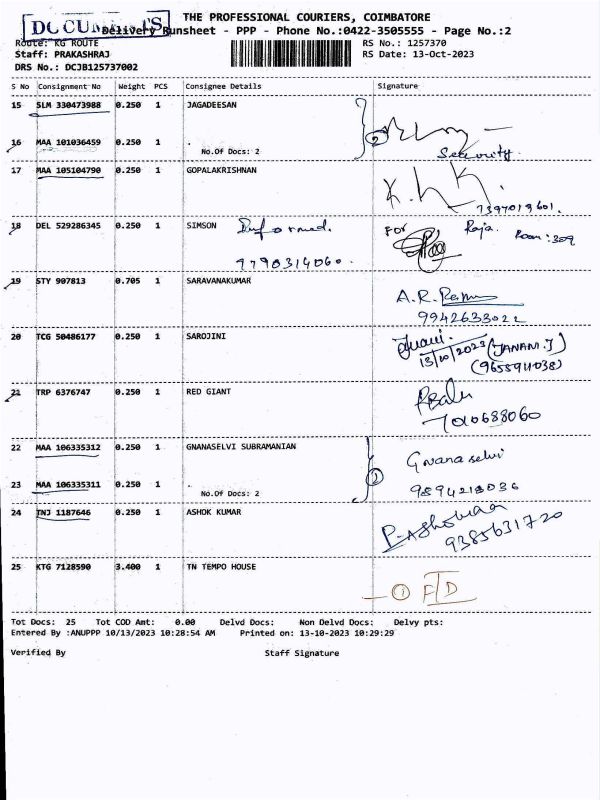 DOCUMENTS
THE PROFESSIONAL COURIERS, COIMBATORE
Delivery Runsheet - PPP - Phone No.:0422-3505555 - Page No.:2
Route: KG ROUTE RS No.: 1257370
Staff: PRAKASHRAJ RS Date: 13-Oct-2023
DRS No.: DCJB125737002
S No Consignment No Weight PCS Consignee Details Signature
15 SLM 330473988 0.250 1 JAGADEESAN
16 MAA 101036459 0.250 1 . 2
No.Of Docs: 2 Security.
17 MAA 105104790 0.250 1 GOPALAKRISHNAN
7397019601.
18 DEL 529286345 0.250 1 SIMSON Informed. FOR Raja. Room: 309
9790314060.
19 STY 907813 0.705 1 SARAVANAKUMAR
A.R.
9942633022
20 TCG 50486177 0.250 1 SAROJINI
13/10/2023 (JANANI.J)
(9655911038)
21 TRP 6376747 0.250 1 RED GIANT
RBalu
7010688060
22 MAA 106335312 0.250 1 GNANASELVI SUBRAMANIAN
Gnanaselvi
23 MAA 106335311 0.250 1 . 2
No.Of Docs: 2 9894213036
24 TNJ 1187646 0.250 1 ASHOK KUMAR
9385631720
25 KTG 7128590 3.400 1 TN TEMPO HOUSE
Tot Docs: 25 Tot COD Amt: 0.00 Delvd Docs: Non Delvd Docs: Delvy pts:
Entered By :ANUPPP 10/13/2023 10:28:54 AM Printed on: 13-10-2023 10:29:29
Verified By Staff Signature